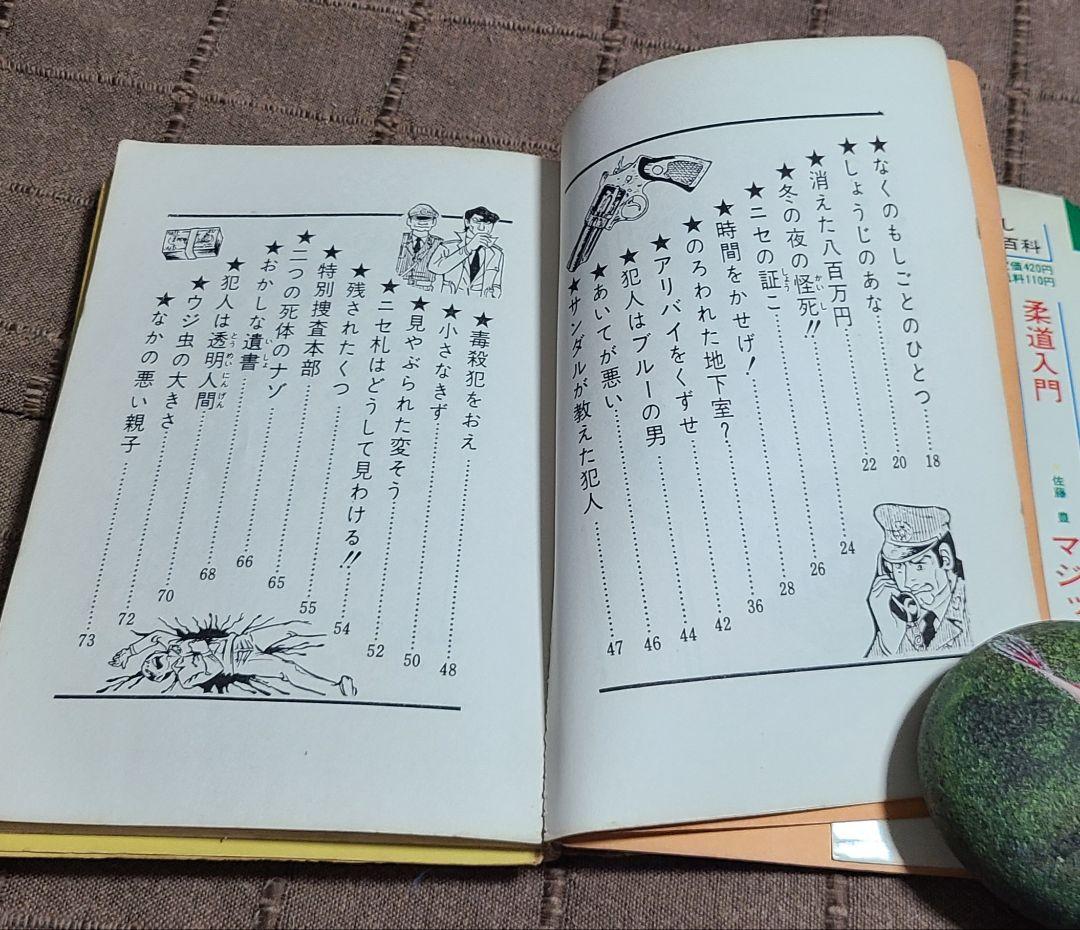 ★なくのもしごとのひとつ……18
★しょうじのあな……20
★消えた八百万円……22
★冬の夜の怪死!!……24
★ニセの証こ……26
★時間をかせげ!……28
★のろわれた地下室?……36
★アリバイをくずせ……42
★犯人はブルーの男……44
★あいてが悪い……46
★サンダルが教えた犯人……47
★毒殺犯をおえ……48
★小さなきず……50
★見やぶられた変そう……52
★ニセ札はどうして見わける!!……54
★残されたくつ……55
★特別捜査本部……65
★二つの死体のナゾ……66
★おかしな遺書……68
★犯人は透明人間……70
★ウジ虫の大きさ……72
★なかの悪い親子……73
し
百科
価420円
料110円
柔道入門
佐藤 豊
マジッ